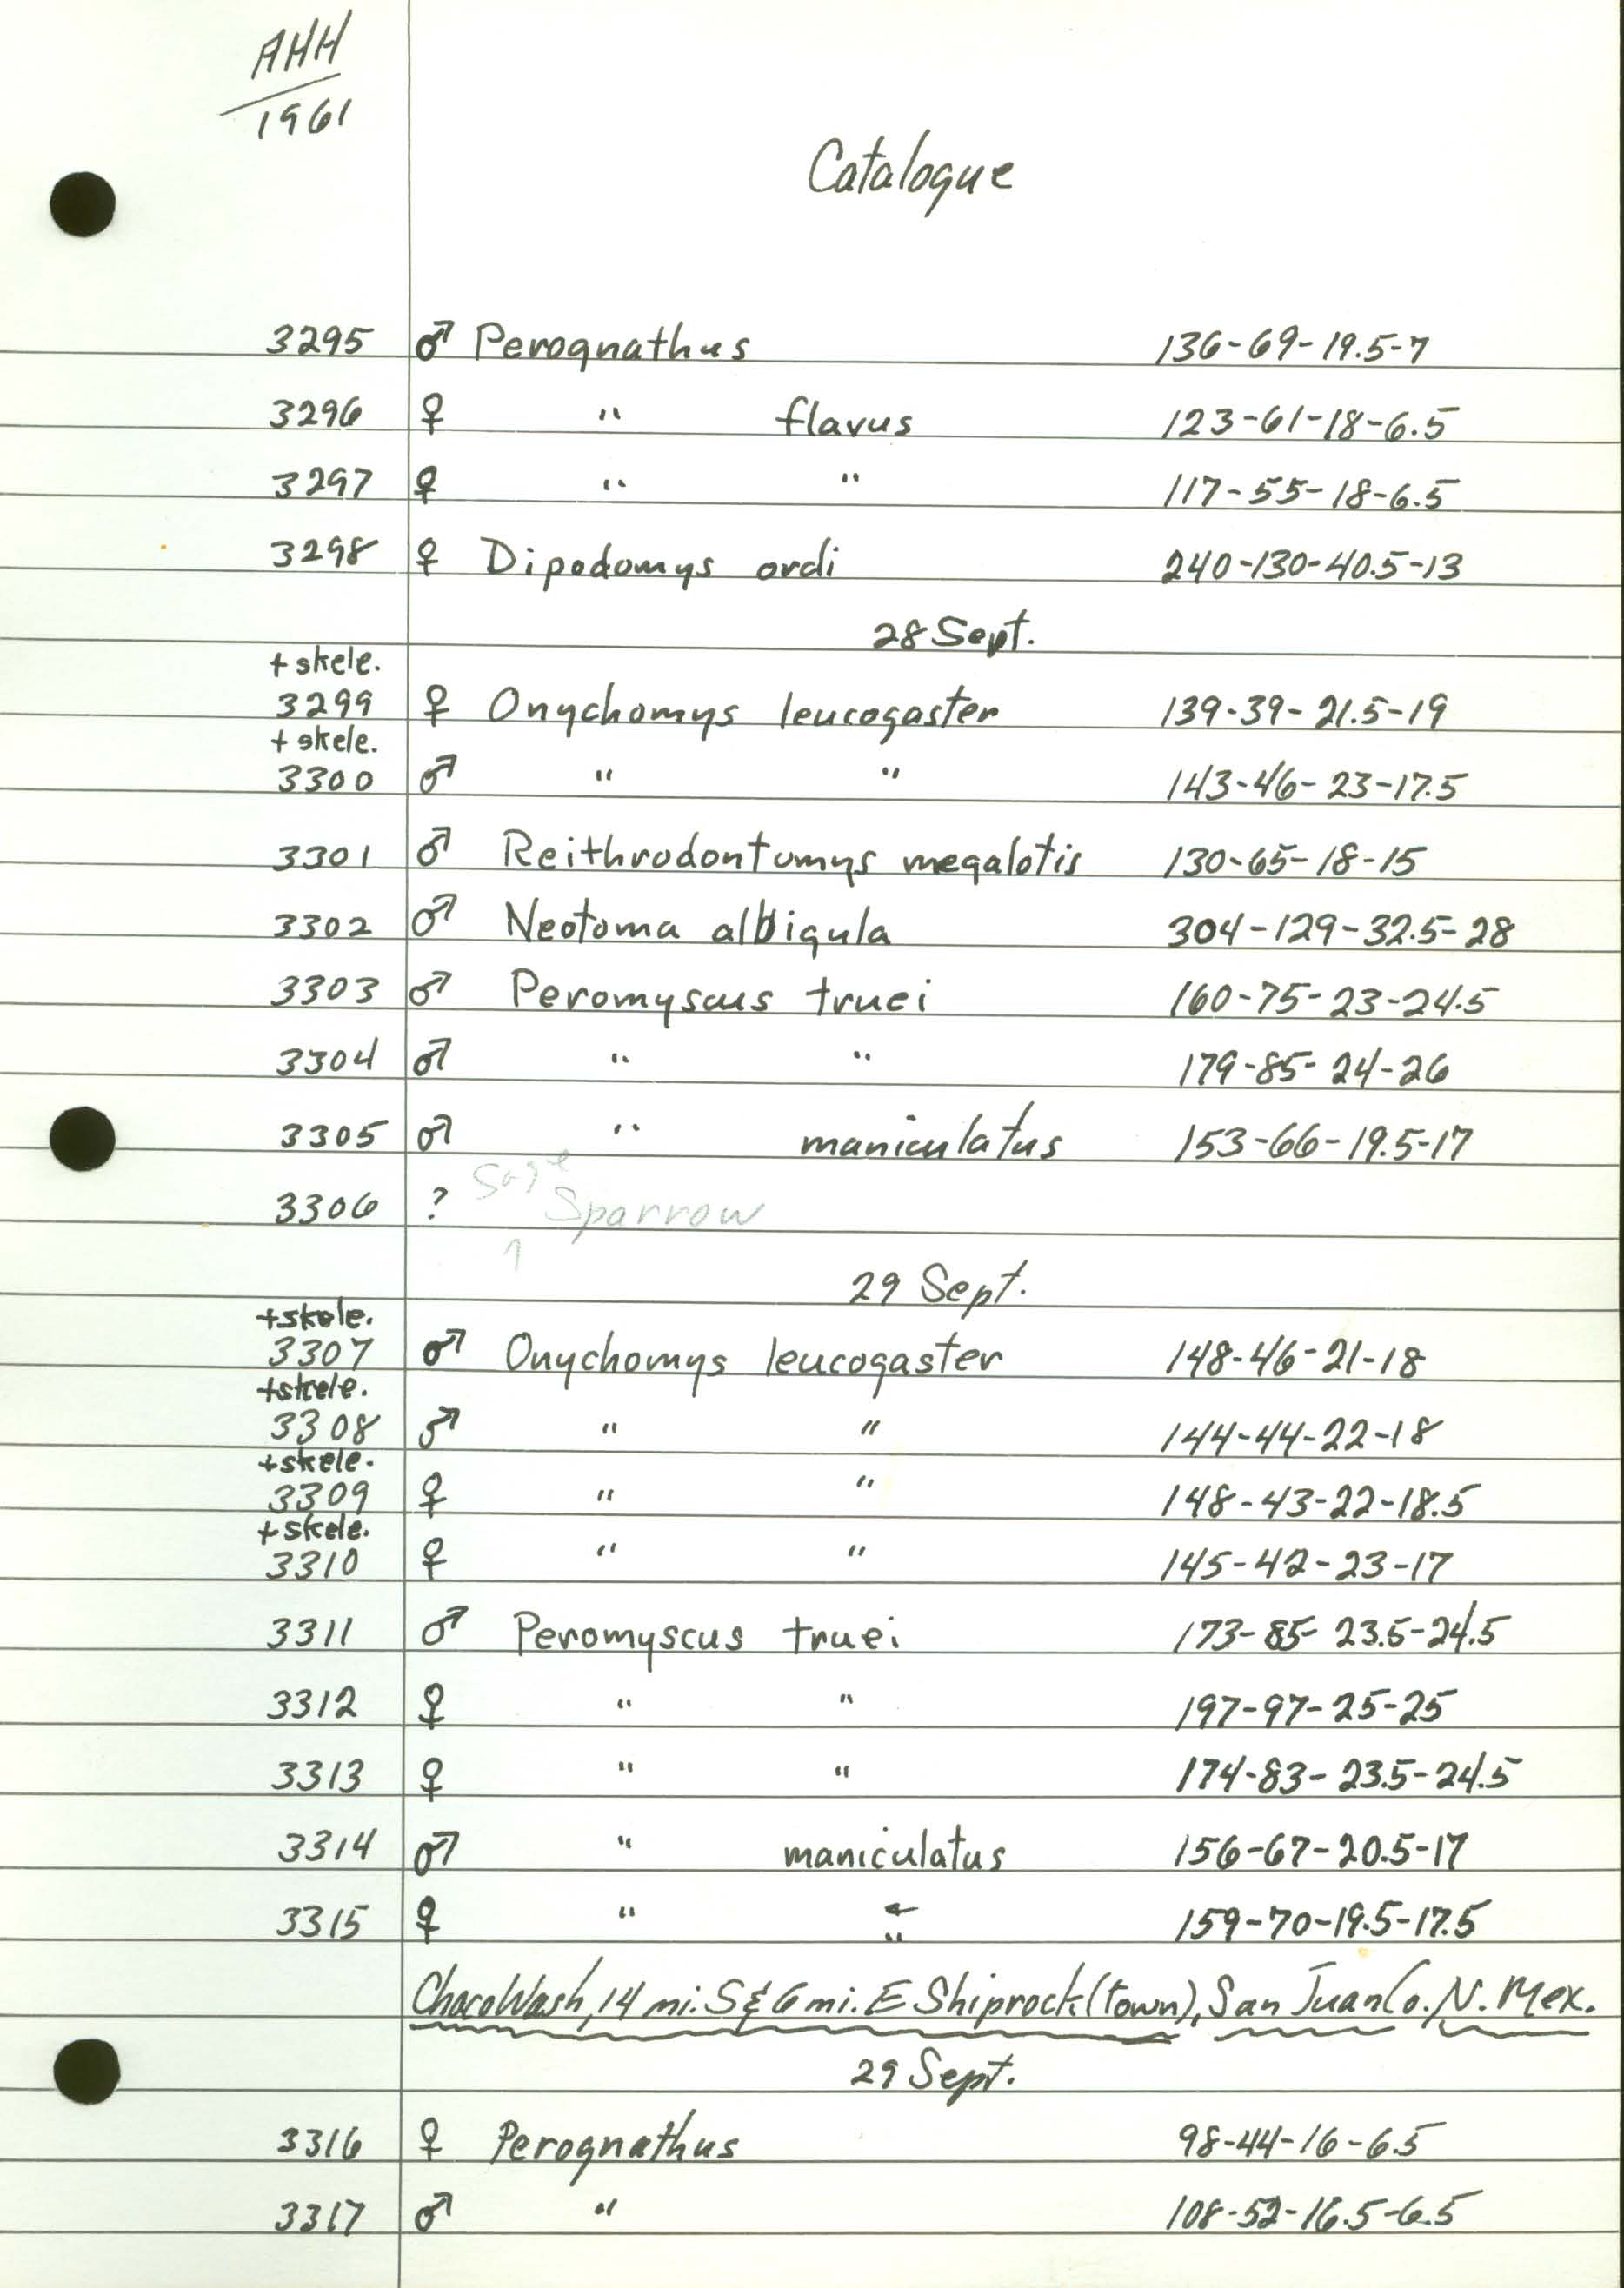 AHH
1961
Catalogue
3295 ♂ Perognathus 136-69-19.5-7
3296 ♀ " flavus 123-61-18-6.5
3297 ♀ " " 117-55-18-6.5
3298 ♀ Dipodomys ordi 240-130-40.5-13
28 Sept.
+ skele.
3299 ♀ Onychomys leucogaster 139-39-21.5-19
+ skele.
3300 ♂ " " 143-46-23-17.5
3301 ♂ Reithrodontomys megalotis 130-65-18-15
3302 ♂ Neotoma albigula 304-129-32.5-28
3303 ♂ Peromyscus truei 160-75-23-24.5
3304 ♂ " " 179-85-24-26
3305 ♂ " maniculatus 153-66-19.5-17
Sage
3306 ? Sparrow
29 Sept.
+skele.
3307 ♂ Onychomys leucogaster 148-46-21-18
+skele.
3308 ♂ " " 144-44-22-18
+skele.
3309 ♀ " " 148-43-22-18.5
+skele.
3310 ♀ " " 145-42-23-17
3311 ♂ Peromyscus truei 173-85-23.5-24.5
3312 ♀ " " 197-97-25-25
3313 ♀ " " 174-83-23.5-24.5
3314 ♂ " maniculatus 156-67-20.5-17
3315 ♀ " " 159-70-19.5-17.5
Chaco Wash, 14 mi. S & 6 mi. E Shiprock (town), San Juan Co., N. Mex.
29 Sept.
3316 ♀ Perognathus 98-44-16-6.5
3317 ♂ " 108-52-16.5-6.5